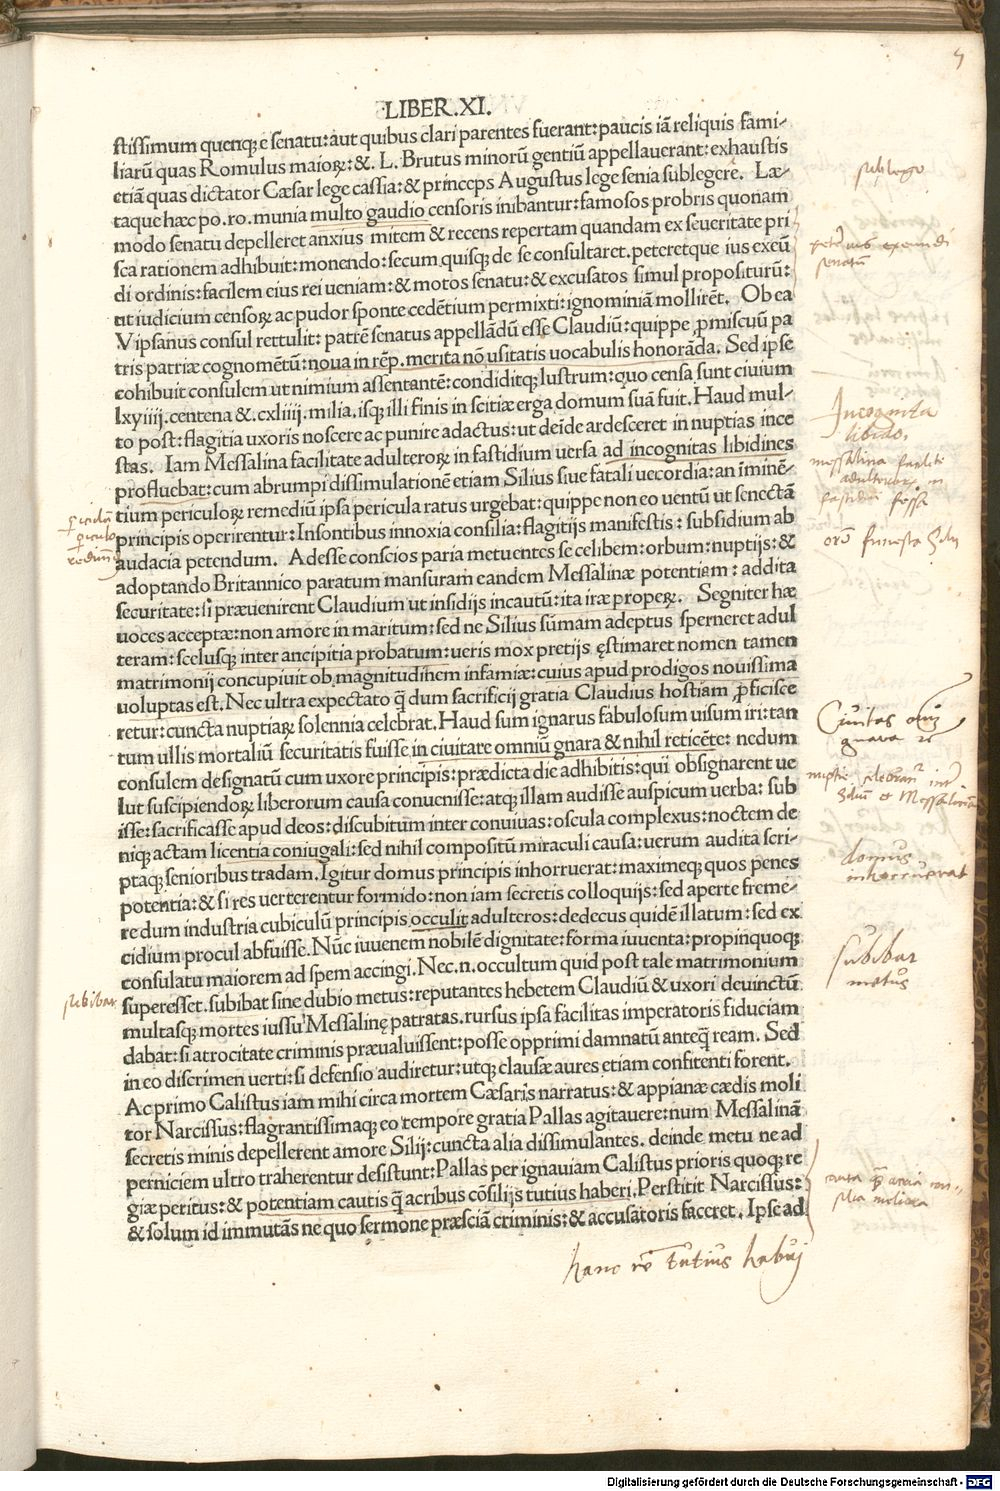 5
.LIBER.XI.
stissimum quenqꝫ e senatu: aut quibus clari parentes fuerant: paucis iã reliquis fami-
liarũ quas Romulus maioꝝ: &. L. Brutus minorũ gentiũ appellauerant: exhaustis
etiã quas dictator Cæsar lege cassia: & princeps Augustus lege senia sublegere. Læ-
taque hæc po. ro. munia multo gaudio censoris inibantur: famosos probris quonam
modo senatu depelleret anxius mitem & recens repertam quandam ex seueritate pri
sca rationem adhibuit: monendo: secum quisqꝫ de se consultaret. peteretque ius exeũ
di ordinis: facilem eius rei ueniam: & motos senatu: & excusatos simul propositurũ:
ut iudicium censoꝝ ac pudor sponte cedẽtium permixti: ignominiã mollirẽt. Ob ea
Vipsanus consul rettulit: patrẽ senatus appellãdũ esse Claudiũ: quippe ꝓmiscuũ pa
tris patriæ cognomẽtũ: noua in rẽp. merita nõ usitatis uocabulis honorãda. Sed ipse
cohibuit consulem ut nimium assentantẽ: condiditqꝫ lustrum: quo censa sunt ciuium
lxyiiij. centena &. cxliiij. milia. isqꝫ illi finis in scitiæ erga domum suã fuit. Haud mul-
to post: flagitia uxoris noscere ac punire adactus: ut deide ardesceret in nuptias ince
stas. Iam Messalina facilitate adulteroꝝ in fastidium uersa ad incognitas libidines
profluebat: cum abrumpi dissimulationẽ etiam Silius siue fatali uecordia: an ĩminẽ-
tium periculoꝝ remediũ ipsa pericula ratus urgebat: quippe non eo uentũ ut senectã
principis operirentur: Insontibus innoxia consilia: flagitijs manifestis: subsidium ab
audacia petendum. Adesse conscios paria metuentes se celibem: orbum: nuptijs: &
adoptando Britannico paratum mansuram eandem Messalinæ potentiam: addita
securitate: si præuenirent Claudium ut insidijs incautũ: ita iræ properꝝ. Segniter hæ
uoces acceptæ: non amore in maritum: sed ne Silius sũmam adeptus sperneret adul
teram: scelusqꝫ inter ancipitia probatum: ueris mox pretijs ęstimaret nomen tamen
matrimonij concupiuit ob magnitudinem infamiæ: cuius apud prodigos nouissima
uoluptas est. Nec ultra expectato q̃ dum sacrificij gratia Claudius hostiam ꝓficisce
retur: cuncta nuptiaꝝ solennia celebrat. Haud sum ignarus fabulosum uisum iri: tan
tum ullis mortaliũ securitatis fuisse in ciuitate omniũ gnara & nihil reticẽte: nedum
consulem designatũ cum uxore principis: prædicta die adhibitis: qui obsignarent ue
lut suscipiendoꝝ liberorum causa conuenisse: atqꝫ illam audisse auspicum uerba: sub
isse: sacrificasse apud deos: discubitum inter conuiuas: oscula complexus: noctem de
niqꝫ actam licentia coniugali: sed nihil compositũ miraculi causa: uerum audita scri-
ptaqꝫ senioribus tradam. Igitur domus principis inhorruerat: maximeqꝫ quos penes
potẽtia: & si res uerterentur formido: non iam secretis colloquijs: sed aperte freme-
re dum industria cubiculũ principis occulit adulteros: dedecus quidẽ illatum: sed ex
cidium procul abfuisse. Nũc iuuenem nobilẽ dignitate: forma iuuenta: propinquoqꝫ
consulatu maiorem ad spem accingi. Nec.n. occultum quid post tale matrimonium
superesset. subibat sine dubio metus: reputantes hebetem Claudiũ & uxori deuinctũ
multasqꝫ mortes iussu Messalinę patratas. rursus ipsa facilitas imperatoris fiduciam
dabat: si atrocitate criminis præualuissent: posse opprimi damnatũ anteq̃ ream. Sed
in eo discrimen uerti: si defensio audiretur: utqꝫ clausæ aures etiam confitenti forent.
Ac primo Calistus iam mihi circa mortem Cæsaris narratus: & appianæ cædis moli
tor Narcissus: flagrantissimaqꝫ eo tempore gratia Pallas agitauere: num Messalinã
secretis minis depellerent amore Silij: cuncta alia dissimulantes. deinde metu ne ad
perniciem ultro traherentur desistunt: Pallas per ignauiam Calistus prioris quoqꝫ re
giæ peritus: & potentiam cautis q̃ acribus cõsilijs tutius haberi. Perstitit Narcissus:
& solum id immutãs ne quo sermone præsciã criminis: & accusatoris faceret. Ipse ad
sublego
senatũ
Incognita
libido.
messalina
Ciuitas
gnara
domus
inhorruerat
subibat
metus
subibat
hanc rẽ tutius habuj
Digitalisierung gefördert durch die Deutsche Forschungsgemeinschaft - DFG